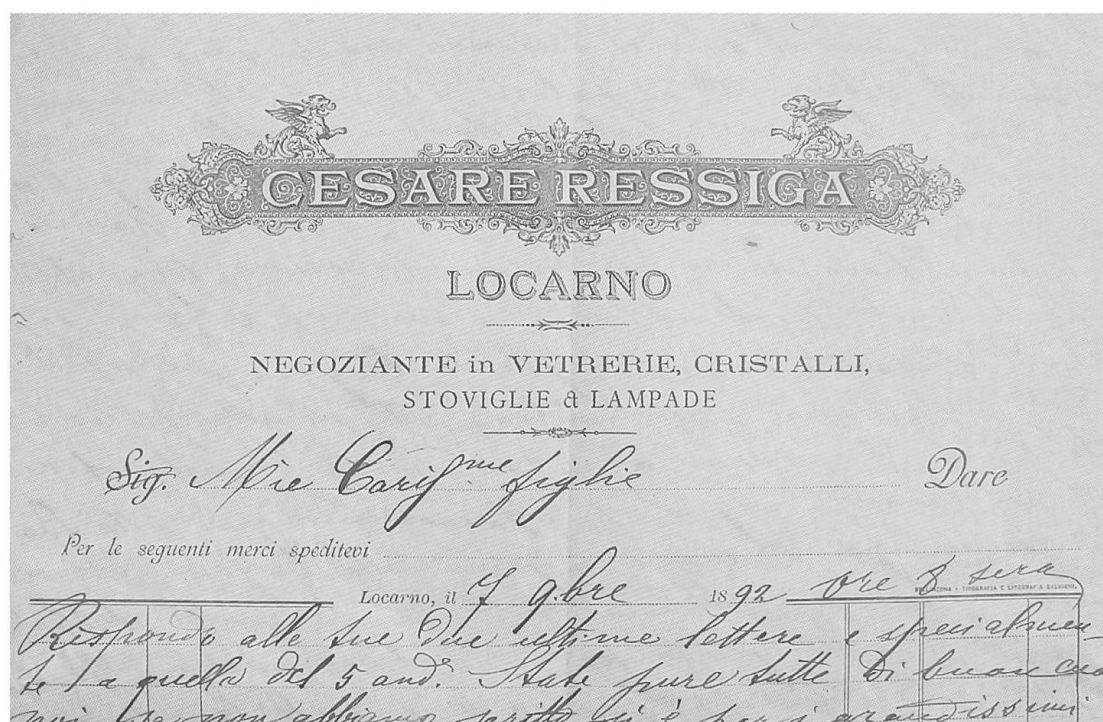 CESARE RESSIGA
LOCARNO
NEGOZIANTE in VETRERIE, CRISTALLI,
STOVIGLIE & LAMPADE
Sig. Mie Cariss.me figlie Dare
Per le seguenti merci speditevi
Locarno, il 7 9.bre 1892 ore 8 sera
TIPOGRAFIA E LITOGRAFIA
Rispondo alle tue due ultime lettere e specialmen-
te a quella del 5 and.e State pure tutte di buon cuo
noi se non abbiamo scritto si è per i grandissimi